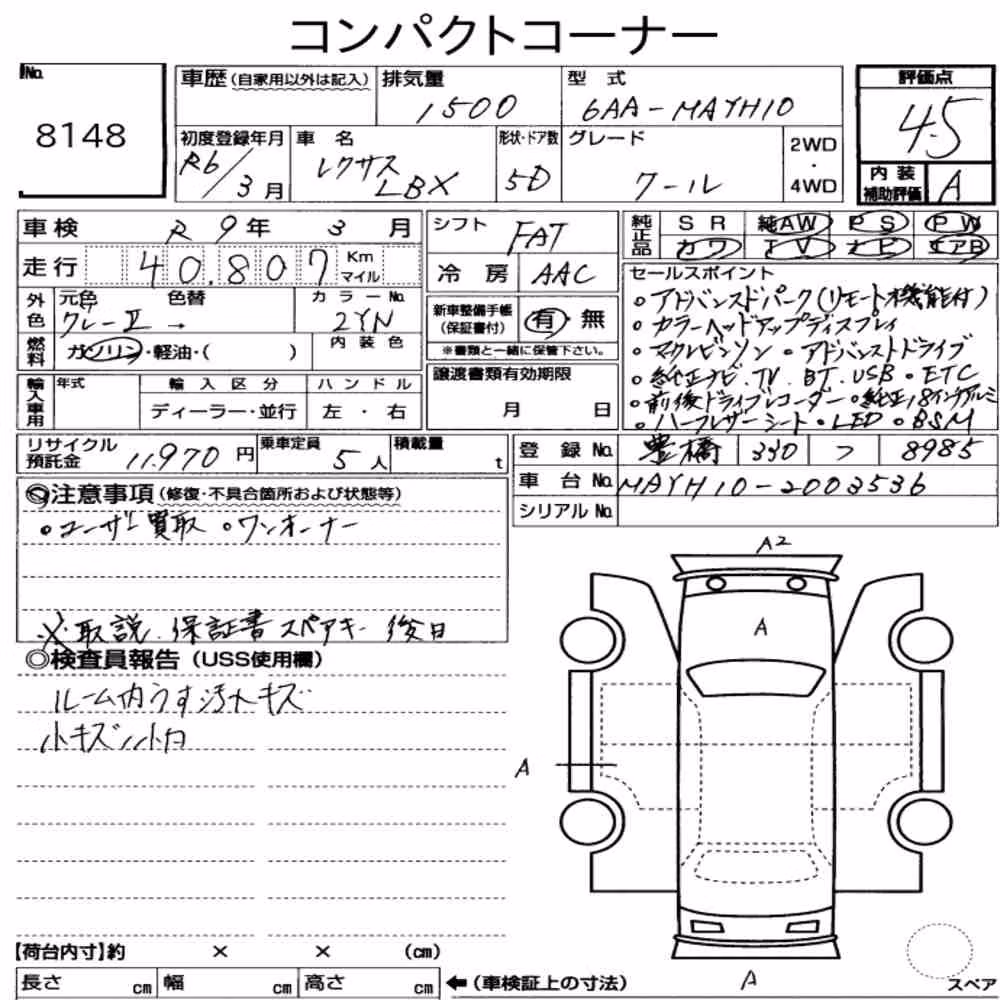 コンパクトコーナー
No. 8148
車歴(自家用以外は記入) 排気量 1500 型式 6AA-MAYH10
評価点 4.5
初度登録年月 R6/3月 車名 レクサス LBX 形状・ドア数 5D グレード クール 2WD・4WD
内装補助評価 A
車検 R9年 3月
走行 40,807 Km マイル
外色 元色 グレーII 色替 → カラーNo. 2YN
燃料 ガソリン・軽油・( ) 内装色
輸入車用 年式 輸入区分 ハンドル
ディーラー・並行 左・右
シフト FAT
冷房 AAC
新車整備手帳(保証書付) 有・無
※書類と一緒に保管下さい。
譲渡書類有効期限
月 日
純正品 SR 純AW PS PW
カワ TV ナビ エアB
セールスポイント
○アドバンスドパーク(リモート機能付)
○カラーヘッドアップディスプレイ
○マークレビンソン ○アドバンストドライブ
○純正ナビ.TV.BT.USB・ETC
○前後ドライブレコーダー・純正18インチアルミ
○ハーフレザーシート・LED・BSM
リサイクル預託金 11,970円 乗車定員 5人 積載量 t
登録No. 豊橋 330 フ 8985
車台No. MAYH10-2003536
シリアルNo.
◎注意事項(修復・不具合箇所および状態等)
○ユーザー買取 ○ワンオーナー
※取説.保証書スペアキー後日
◎検査員報告(USS使用欄)
ルーム内うす汚れキズ
小キズ小凹
A2
A
A
A
【荷台内寸】約 × × (cm)
長さ cm 幅 cm 高さ cm ←(車検証上の寸法)
スペア